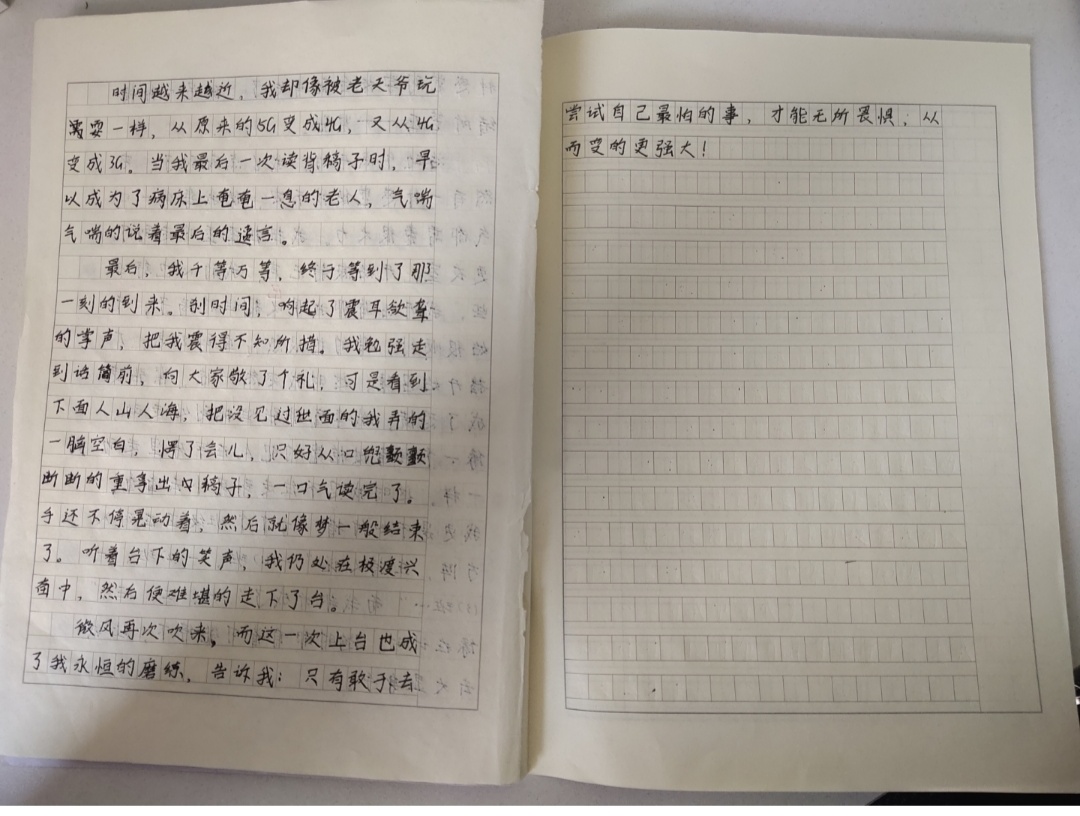 时间越来越近，我却像被老天爷玩
耍一样，从原来的5G变成4G，又从4G
变成3G。当我最后一次读背稿子时，早
以成为了病床上奄奄一息的老人，气喘
气喘的说着最后的遗言。
最后，我千等万等，终于等到了那
一刻的到来。刹时间，响起了震耳欲聋
的掌声，把我震得不知所措。我勉强走
到话筒前，向大家敬了个礼，可是看到
下面人山人海，把没见过世面的我弄的
一脑空白，愣了会儿，只好从口兜颤颤
断断的重拿出稿子，一口气读完了。
手还不停晃动着，然后就像梦一般结束
了。听着台下的笑声，我仍处在极度兴
奋中，然后便难堪的走下了台。
微风再次吹来，而这一次上台也成
了我永恒的磨练，告诉我：只有敢于去
尝试自己最怕的事，才能无所畏惧，从
而变的更强大！